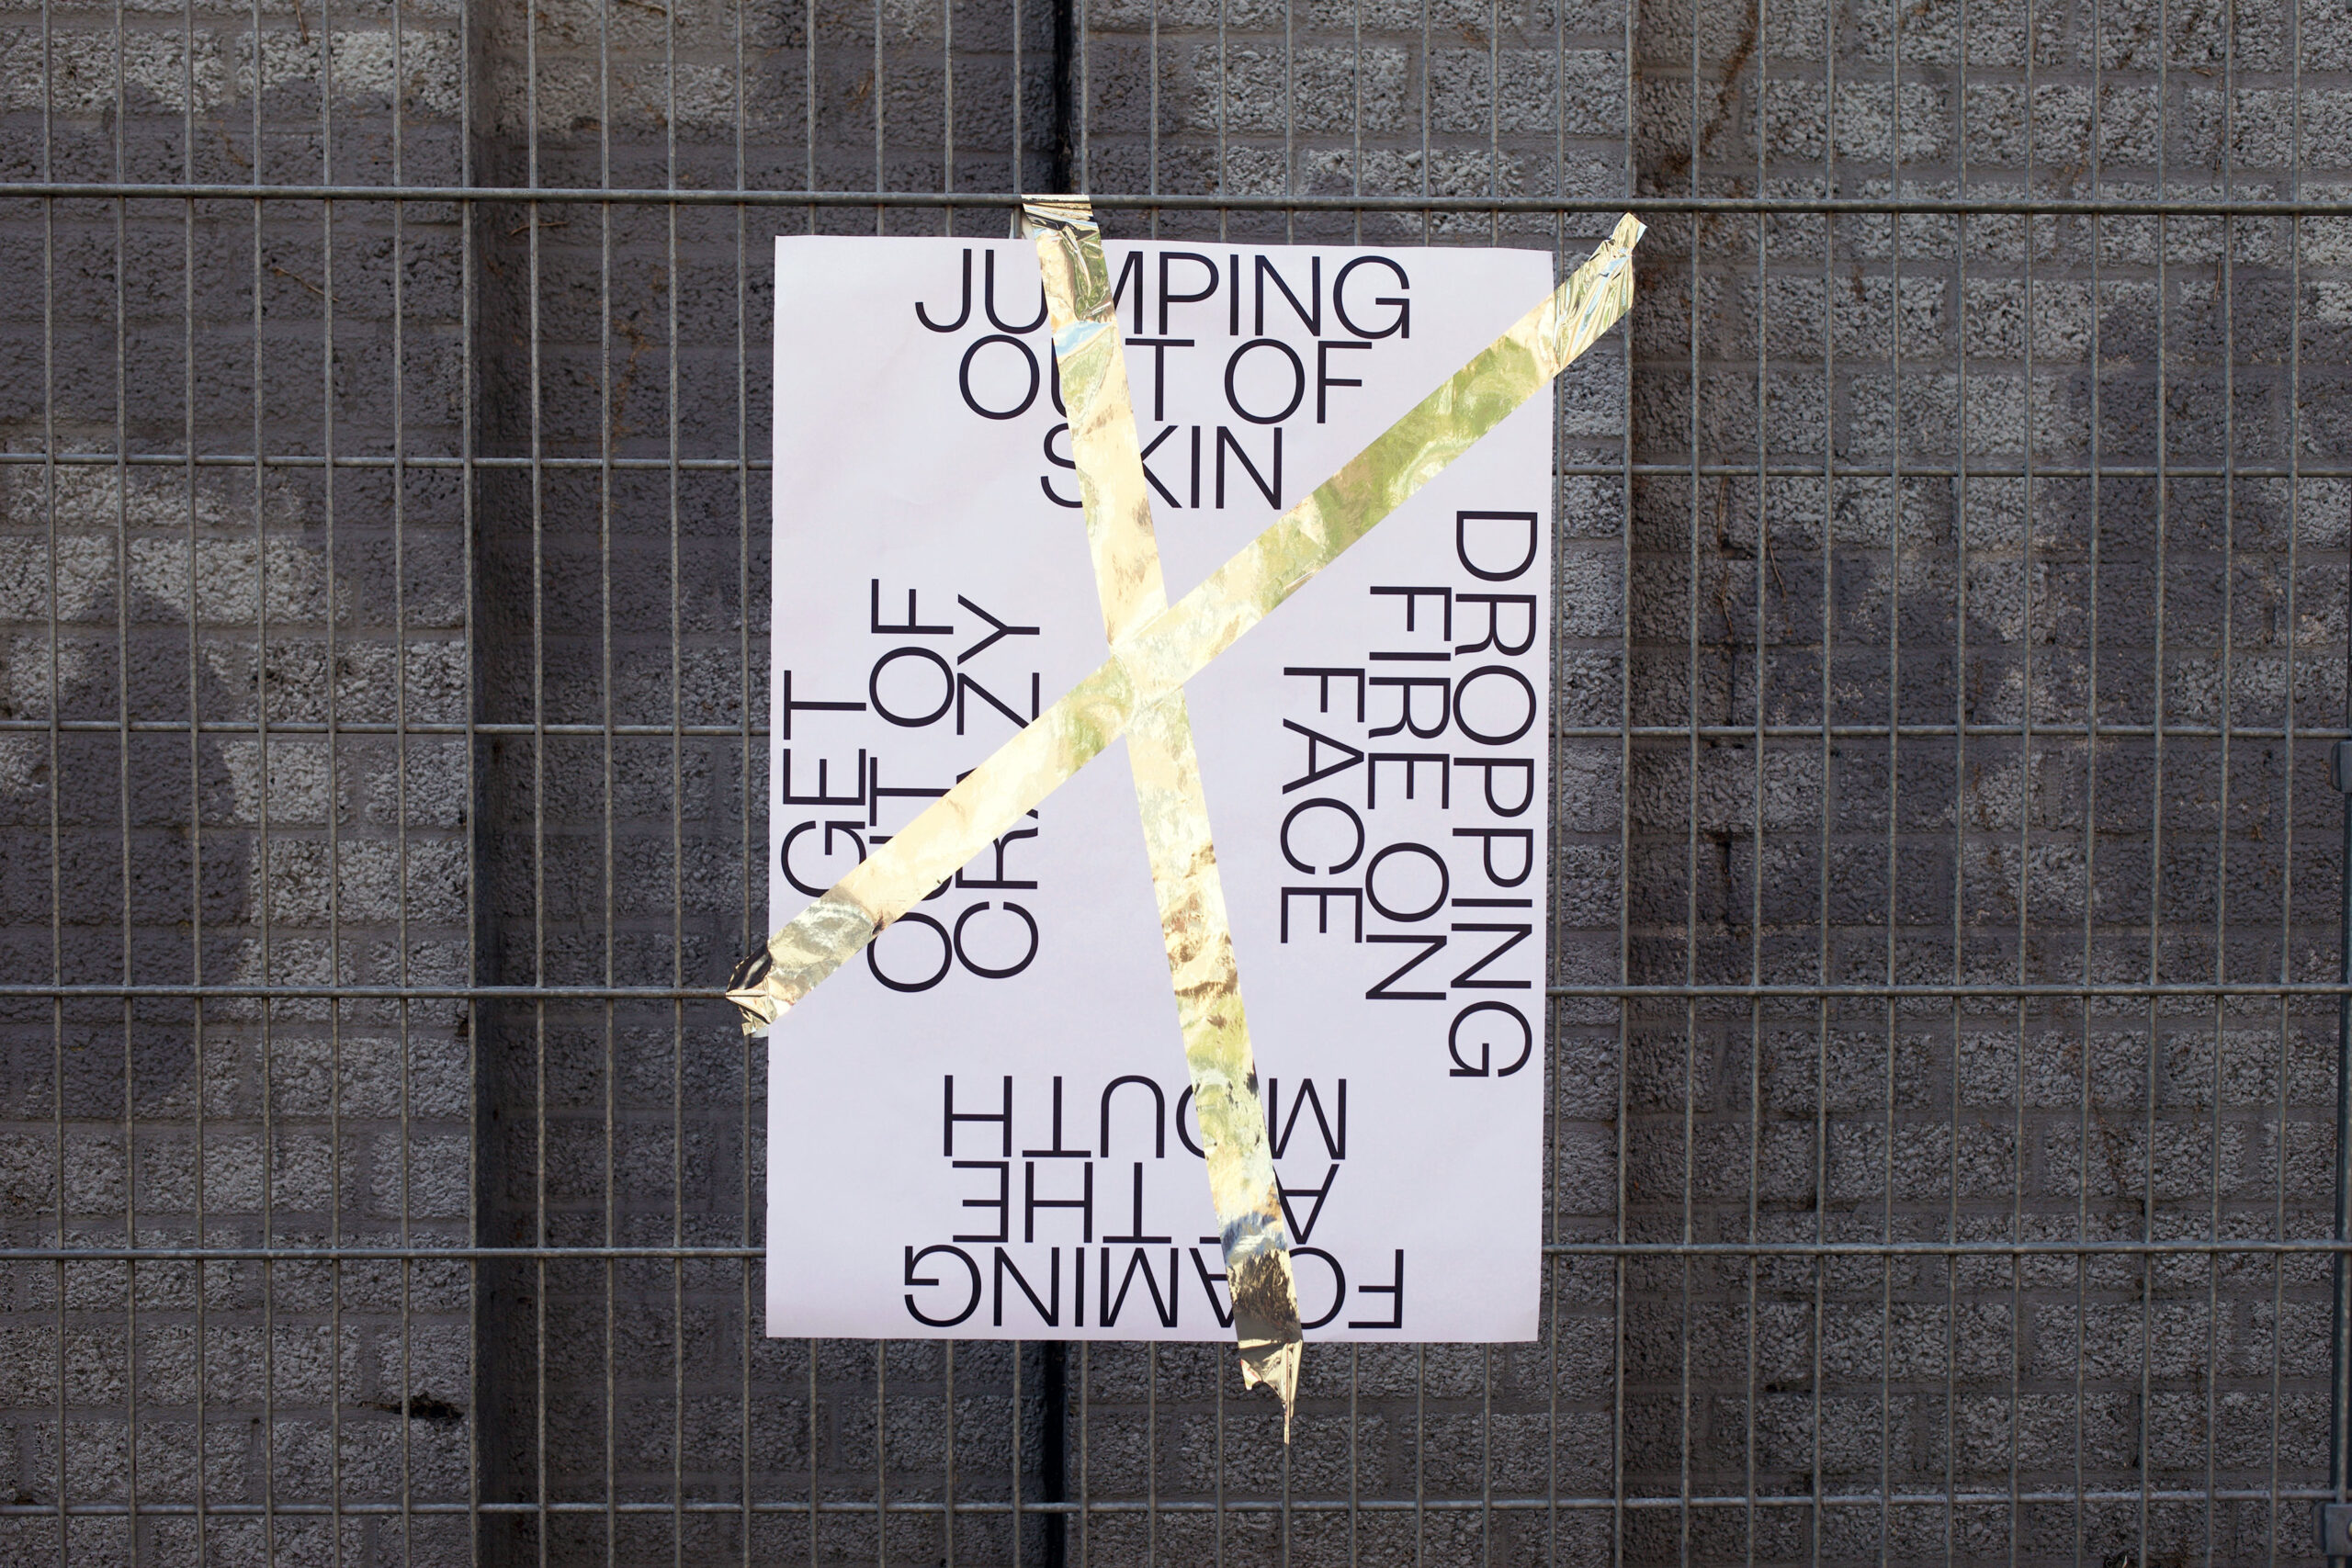 JUMPING
OUT OF
SKIN
DROPPING
FIRE ON
FACE
FOAMING
AT THE
MOUTH
GET
OUT OF
CRAZY